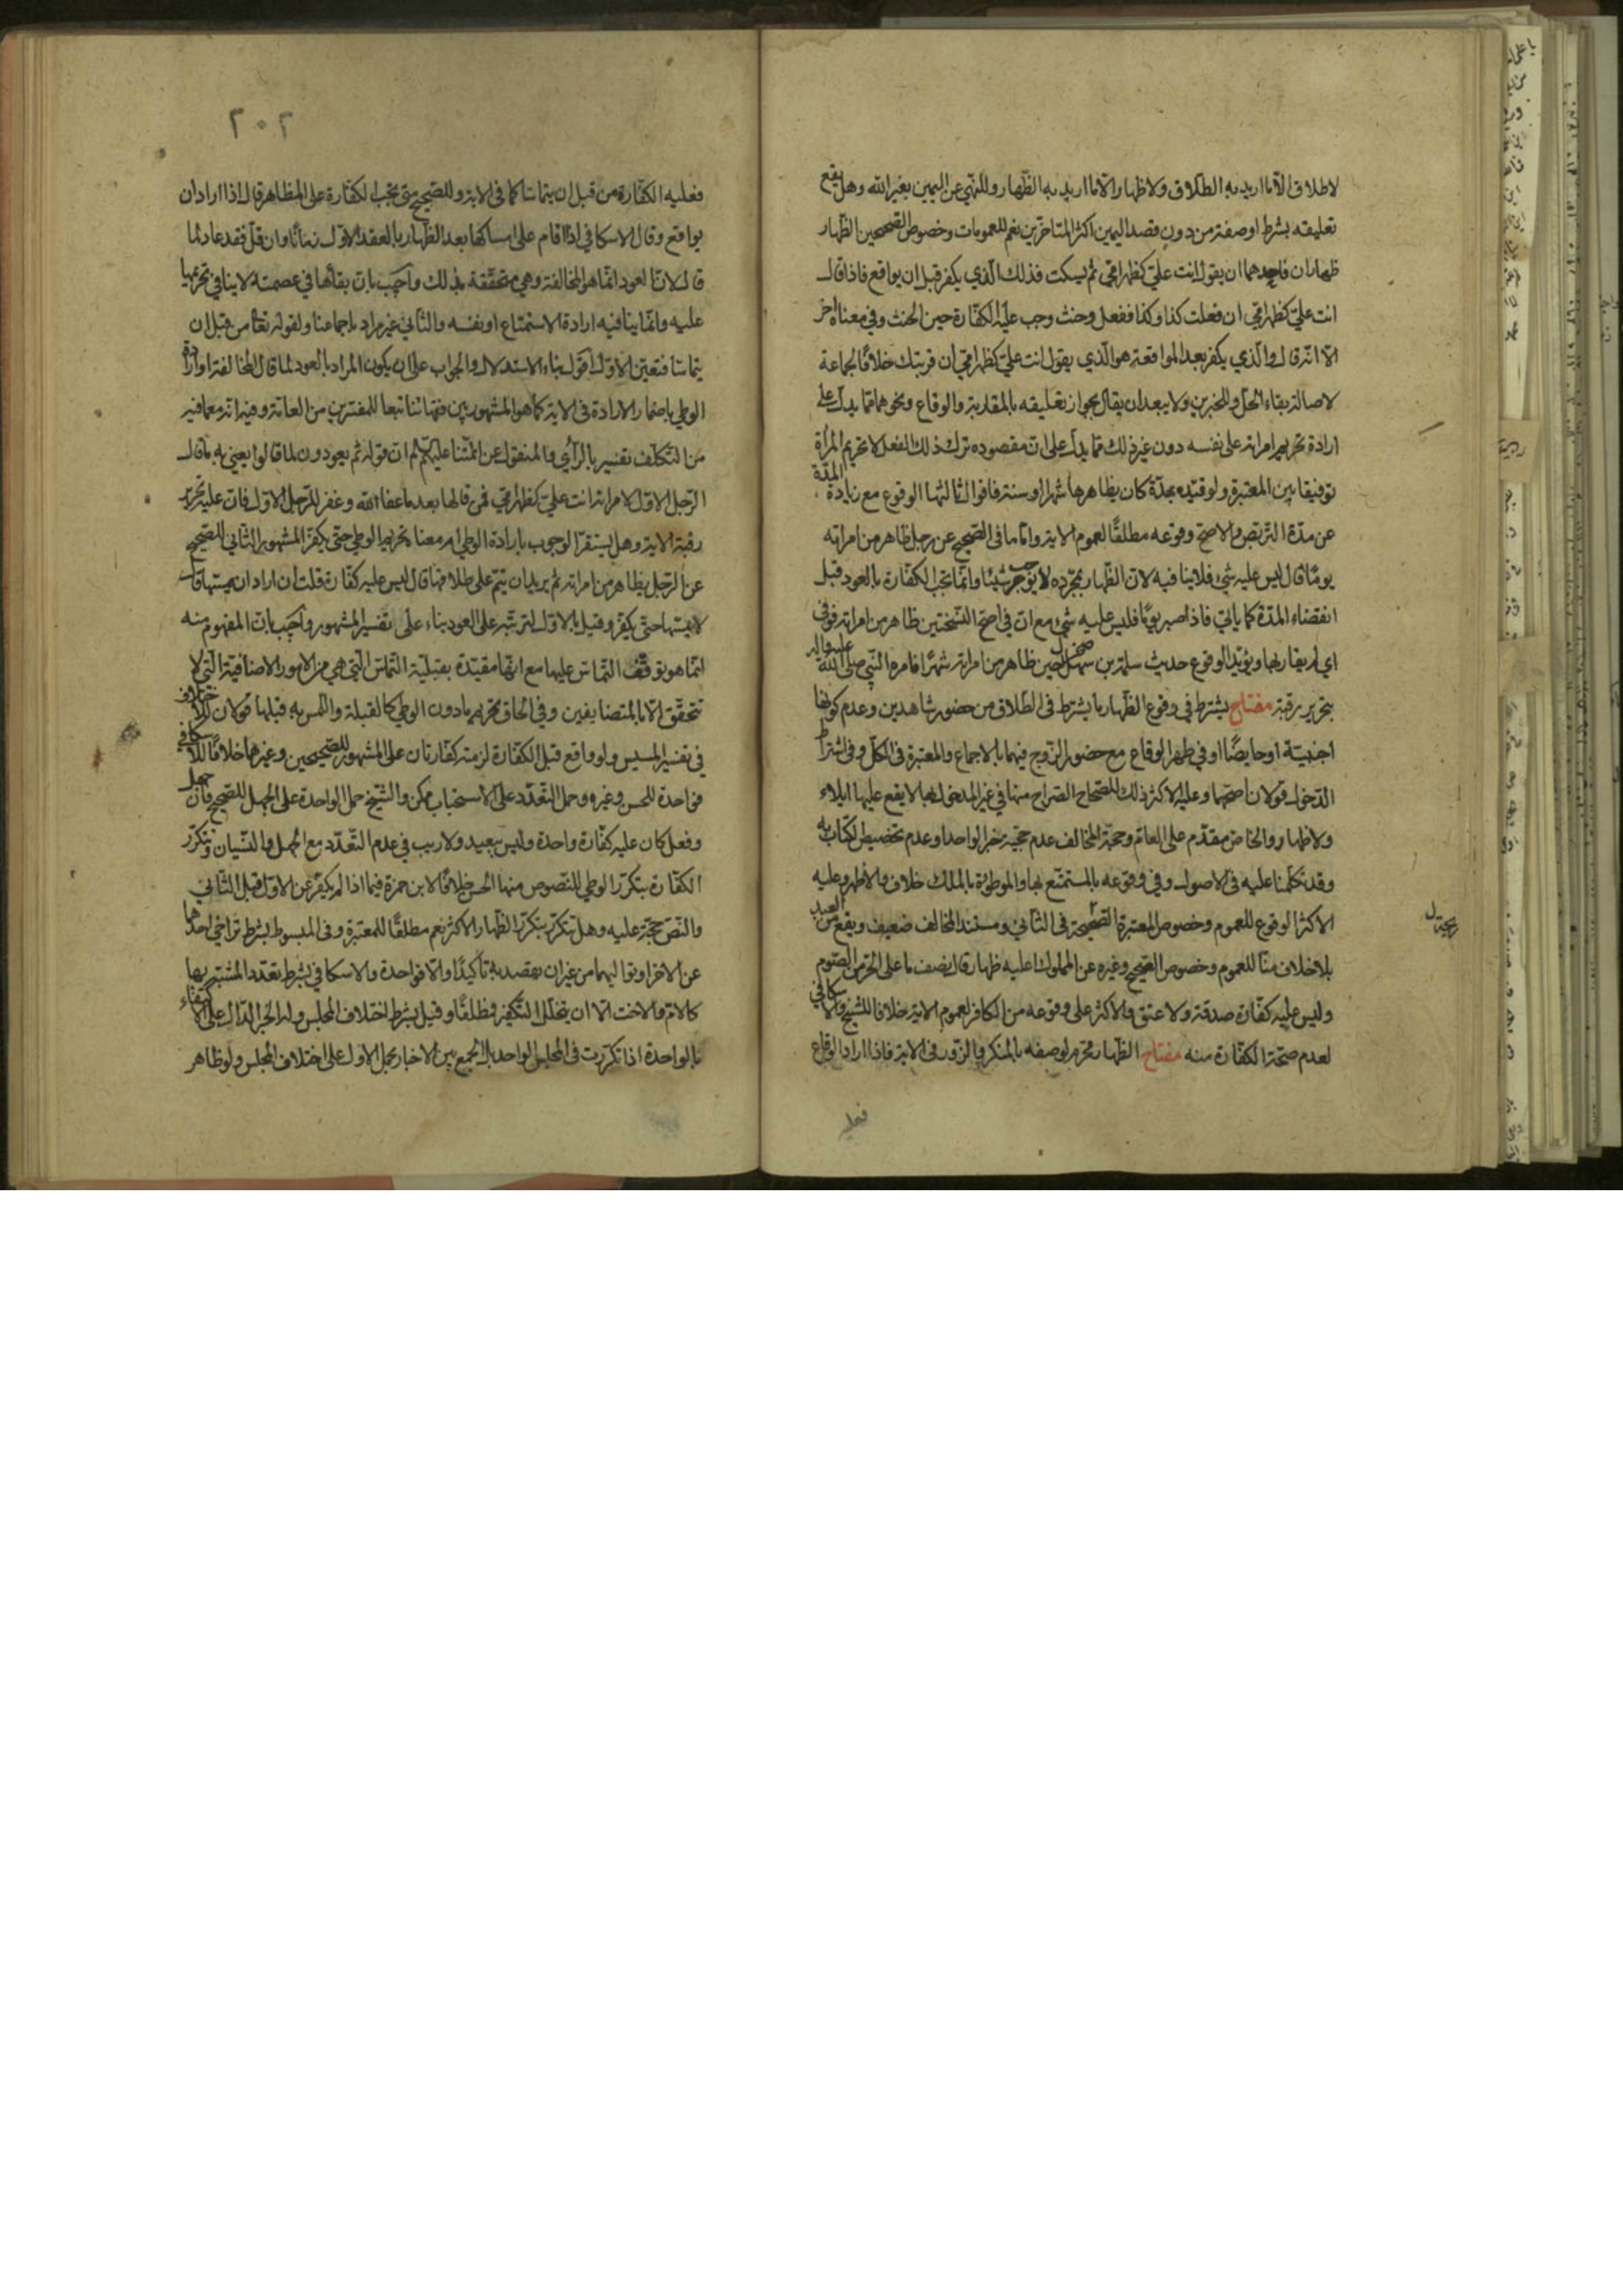 لا طلاق الا ما اريد به الطلاق ولا ظهار الا ما اريد به الظهار وللنهي عن اليمين بغير الله وهل يقع
تعليقه بشرط او صفة من دون قصد اليمين اكثر المتاخرين نعم للعمومات وخصوص الصحيحين الظهار
ظهاران فاحدهما ان يقول انت علي كظهر امي ثم يسكت فذلك الذي يكفر قبل ان يواقع فاذا قال
انت علي كظهر امي ان فعلت كذا وكذا ففعل وحنث وجب عليه الكفارة حين الحنث وفي معناه اخر
الا انه قال والذي يكفر بعد المواقعة هو الذي يقول انت علي كظهر امي ان قربتك خلافا لجماعة
لاصالة بقاء الحل وللخبرين ولا يبعد ان يقال بجواز تعليقه بالمقاربة والوقاع ونحوهما مما يدل على
ارادة تحريم امراته على نفسه دون غير ذلك مما يدل على ان مقصوده ترك ذلك الفعل لا تحريم المرأة
توفيقا بين المعتبرة ولو قيده بمدة كان يظاهرها شهرا او سنة فاقوال ثالثها الوقوع مع زيادة المدة
عن مدة التربص والاصح وقوعه مطلقا لعموم الاية واما ما في الصحيح عن رجل ظاهر من امراته
يوما قال ليس عليه شيء فلا ينافيه لان الظهار بمجرده لا يوجب شيئا وانما تجب الكفارة بالعود قبل
انقضاء المدة كما ياتي فاذا صبر يوما فليس عليه شيء مع ان في اصح النسختين ظاهر من امراته فوفى
اي لم يقاربها ويؤيد الوقوع حديث سلمة بن صخر حين ظاهر من امراته شهرا فامره النبي صلى الله عليه واله
بتحرير رقبة مفتاح يشترط في وقوع الظهار ما يشترط في الطلاق من حضور شاهدين وعدم كونها
اجنبية او حايضا او في طهر الوقاع مع حضور الزوج فيهما بالاجماع والمعتبرة في الكل وفي اشتراط
الدخول قولان اصحهما وعليه الاكثر ذلك للصحاح الصراح منها في غير المدخول بها لا يقع عليها ايلاء
ولا ظهار والخاص مقدم على العام وحجة المخالف عدم حجية خبر الواحد او عدم تخصيص الكتاب به
وقد تكلمنا عليه في الاصول وفي وقوعه بالمستمتع بها والموطوءة بالملك خلاف والاظهر وعليه
الاكثر الوقوع للعموم وخصوص المعتبرة الصحيحة في الثاني ومستند المخالف ضعيف ويقع من العبد
بلا خلاف منا للعموم وخصوص الصحيح وغيره عن المملوك اعليه ظهار قال نصف ما على الحر من الصوم
وليس عليه كفارة صدقة ولا عتق والاكثر على وقوعه من الكافر لعموم الاية خلافا للشيخ والاسكافي
لعدم صحة الكفارة منه مفتاح الظهار محرم لوصفه بالمنكر والزور في الاية فاذا اراد الوقاع
فعليه
٢٠٢
فعليه الكفارة من قبل ان يتماسا كما في الاية وللصحيح متى تجب الكفارة على المظاهر قال اذا اراد ان
يواقع وقال الاسكافي اذا اقام على امساكها بعد الظهار بالعقد الاول زمانا وان قل فقد عاد لما
قال لان العود انما هو المخالفة وهي متحققة بذلك واجيب بان بقاءها في عصمته لا ينافي تحريمها
عليه وانما ينافيه ارادة الاستمتاع او نفسه والثاني غير مراد باجماعنا ولقوله تعالى من قبل ان
يتماسا فتعين الاول اقول بناء الاستدلال والجواب على ان يكون المراد بالعود لما قال المخالفة او ارادة
الوطي باضمار الارادة في الاية كما هو المشهور بين فقهائنا تبعا للمفسرين من العامة وفيه انه مع ما فيه
من التكلف تفسير بالرأي والمنقول عن ائمتنا عليهم السلم ان قوله ثم يعودون لما قالوا يعني به ما قال
الرجل الاول لامراته انت علي كظهر امي فمن قالها بعد ما عفا الله وغفر للرجل الاول فان عليه تحرير
رقبة الاية وهل يستقر الوجوب بارادة الوطي ام معناه تحريم الوطي حتى يكفر المشهور الثاني للصحيح
عن الرجل يظاهر من امراته ثم يريد ان يتم على طلاقها قال ليس عليه كفارة قلت ان اراد ان يمسها قال
لا يمسها حتى يكفر وقيل بالاول لترتبه على العود بناء على تفسير المشهور واجيب بان المفهوم منه
انما هو توقف التماس عليها مع انها مقيدة بقبلية التماس التي هي من الامور الاضافية التي لا
تتحقق الا بالمتضايفين وفي الحاق تحريم ما دون الوطي كالقبلة واللمس به قبلها قولان للاختلاف
في تفسير المسيس ولو واقع قبل الكفارة لزمته كفارتان على المشهور للصحيحين وغيرهما خلافا للاسكافي
فواحدة للحسن وغيره وحمل التعدد على الاستحباب ممكن والشيخ حمل الواحدة على الجهل للصحيح فان جهل
وفعل كان عليه كفارة واحدة وليس ببعيد ولا ريب في عدم التعدد مع الجهل والنسيان وتتكرر
الكفارة بتكرر الوطي للنصوص منها الحسن خلافا لابن حمزة فيما اذا لم يكفر عن الاول قبل الثاني
والنص حجة عليه وهل تتكرر بتكرر الظهار الاكثر نعم مطلقا للمعتبرة وفي المبسوط بشرط تراخي احدهما
عن الاخر او تواليهما من غير ان يقصد به تاكيدا والا فواحدة والاسكافي بشرط تعدد المشبه بها
كالام والاخت الا ان يتخلل التكفير فمطلقا وقيل بشرط اختلاف المجلس وله الخبر الدال على الاكتفاء
بالواحدة اذا تكررت في المجلس الواحد بالجمع بين الاخبار بحمل الاول على اختلاف المجلس ولو ظاهر